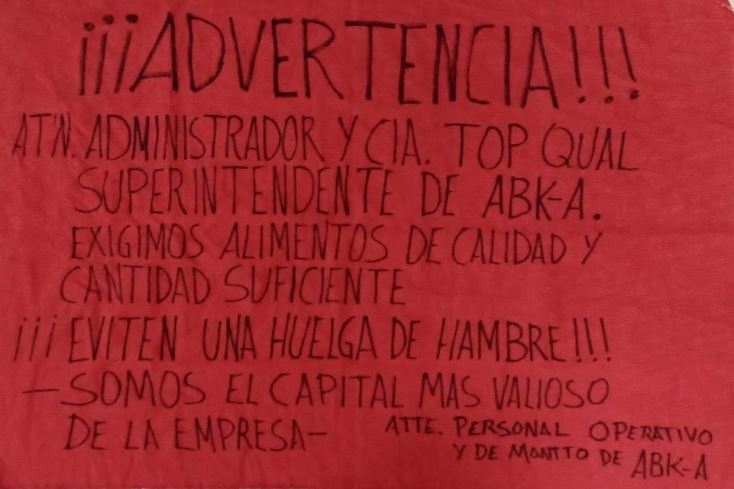 ¡¡¡ADVERTENCIA!!!
AT'N. ADMINISTRADOR Y CIA. TOP QUAL
SUPERINTENDENTE DE ABK-A.
EXIGIMOS ALIMENTOS DE CALIDAD Y
CANTIDAD SUFICIENTE
¡¡¡EVITEN UNA HUELGA DE HAMBRE!!!
—SOMOS EL CAPITAL MAS VALIOSO
DE LA EMPRESA—
ATTE. PERSONAL OPERATIVO
Y DE MANTTO DE ABK-A